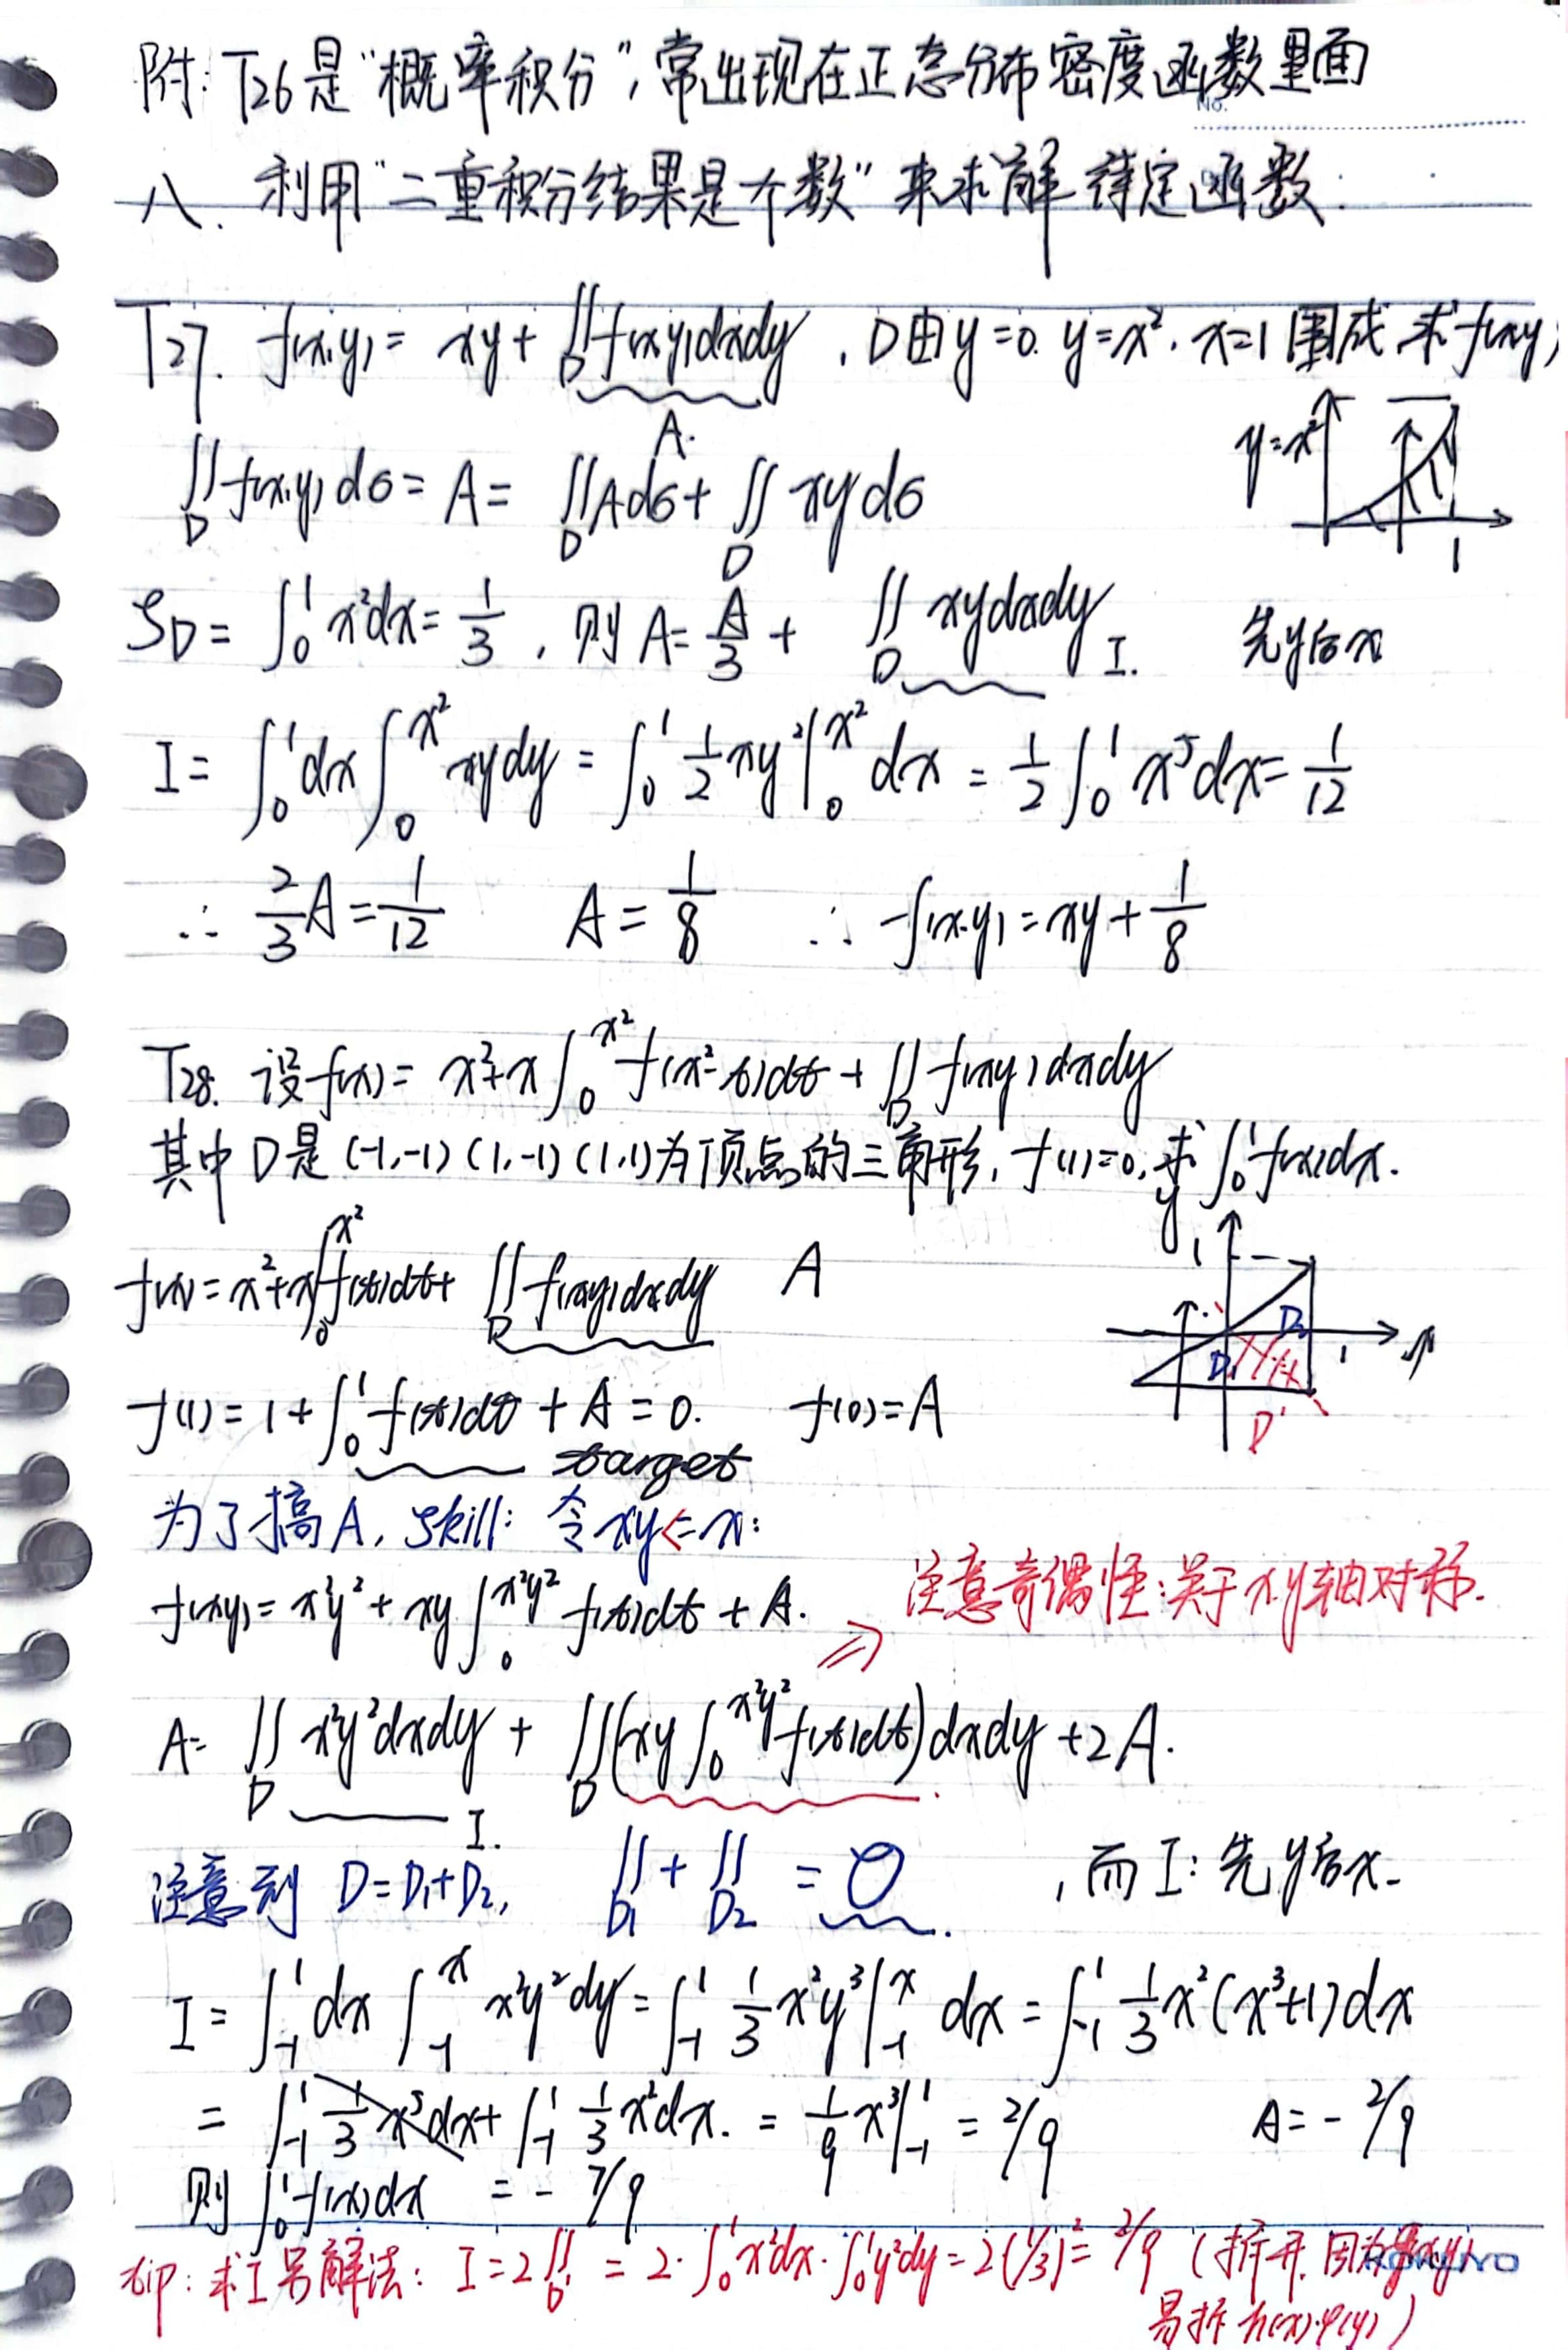 附: T26是“概率积分”,常出现在正态分布密度函数里面
No.
八. 利用“二重积分结果是个数”来求解待定函数.
T27. f(x,y)= xy+ ∬_D f(x,y)dxdy , D由y=0. y=x². x=1围成.求f(x,y)
A.
y=x²
1
∬_D f(x,y)dσ= A= ∬_D Adσ+ ∬_D xydσ
S_D= ∫_0^1 x²dx= 1/3 , 则 A= A/3 + ∬_D xydxdy I. 先y后x
I= ∫_0^1 dx ∫_0^{x²} xydy = ∫_0^1 1/2 xy²|_0^{x²} dx = 1/2 ∫_0^1 x⁵dx= 1/12
∴ 2/3 A= 1/12 A= 1/8 ∴ f(x,y)=xy+ 1/8
T28. 设f(x)= x²+x ∫_0^{x²} f(x²-t)dt + ∬_D f(xy)dxdy
其中D是(-1,-1)(1,-1)(1,1)为顶点的三角形, f(1)=0,求 ∫_0^1 f(x)dx.
f(x)=x²+x∫_0^{x²} f(t)dt+ ∬_D f(xy)dxdy A
y 1 D₂ D₁ 1 x D'
f(1)= 1+ ∫_0^1 f(t)dt + A=0. f(0)=A
target
为了搞A, skill: 令xy<=x:
f(xy)= x²y²+ xy ∫_0^{x²y²} f(t)dt + A.
⇒ 注意奇偶性:关于x,y轴对称.
A= ∬_D x²y²dxdy + ∬_D (xy ∫_0^{x²y²} f(t)dt)dxdy +2A.
I.
注意到 D=D₁+D₂, ∬_{D₁} + ∬_{D₂} = 0 . ,而I: 先y后x.
I= ∫_{-1}^1 dx ∫_{-1}^x x²y²dy= ∫_{-1}^1 1/3 x²y³|_{-1}^x dx= ∫_{-1}^1 1/3 x²(x³+1)dx
= ∫_{-1}^1 1/3 x⁵dx+ ∫_{-1}^1 1/3 x²dx. = 1/9 x³|_{-1}^1 = 2/9 A= - 2/9
则 ∫_0^1 f(x)dx = - 7/9
tip: 求I另解法: I=2∬_{D'} = 2·∫_0^1 x²dx·∫_0^1 y²dy=2(1/3)²= 2/9 (拆开,因为
KOKUYO
易拆 h(x)·φ(y))